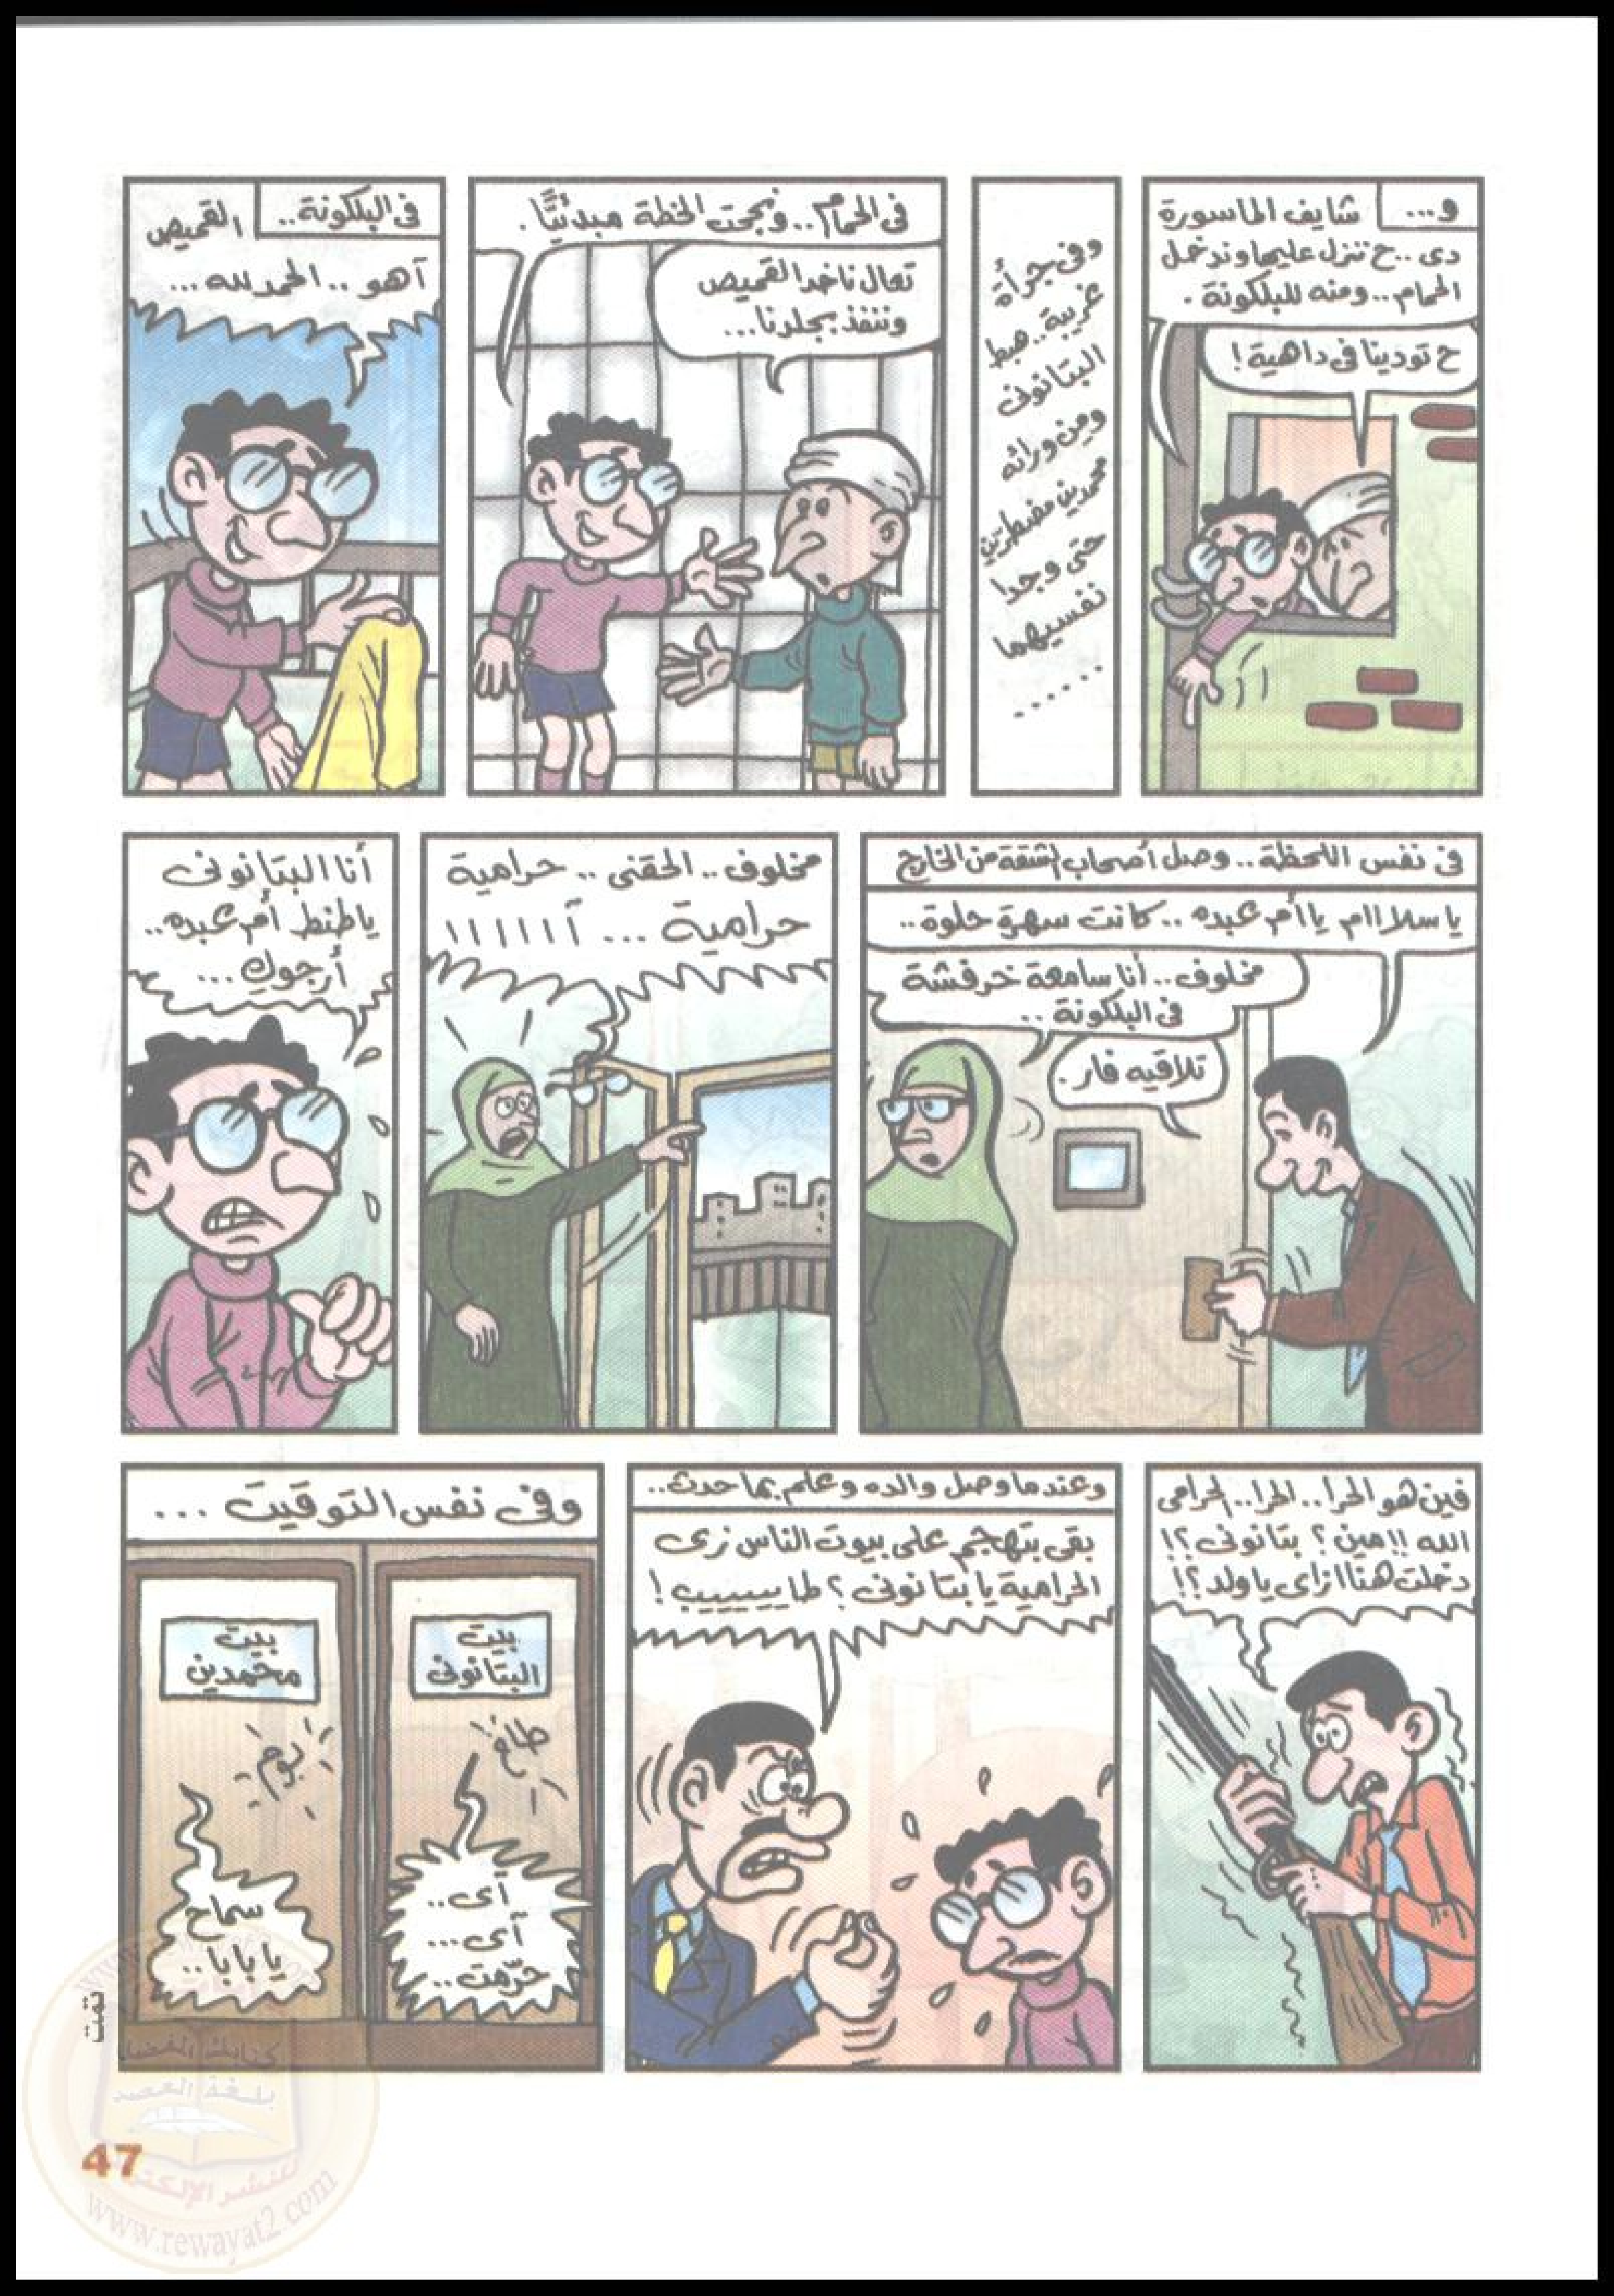 و...
شايف الماسورة
دى.. ح ننزل عليها وندخل
الحمام.. ومنه للبلكونة.
ح تودينا فى داهية!
وفى جرأة
غريبة.. هبط
البتانونى
ومن ورائه
محمدين مضطرين
حتى وجدا
نفسيهما
......
فى الحمام.. ونجحت الخطة مبدئيًّا.
تعال ناخد القميص
وننفذ بجلدنا...
فى البلكونة..
القميص
آهو.. الحمد لله...
فى نفس اللحظة.. وصل أصحاب الشقة من الخارج
يا سلااام يا أم عبده.. كانت سهرة حلوة..
مخلوف.. أنا سامعة خرفشة
فى البلكونة..
تلاقيه فار.
مخلوف.. الحقنى.. حرامية
حرامية... آاااااا
أنا البتانونى
يا طنط أم عبده..
أرجوكِ...
فين هو الحرا.. الحرا.. الحرامى
الله!! مين؟ بتانونى؟!
دخلت هنا ازاى يا ولد؟!
وعندما وصل والده وعلم بما حدث..
بقى بتهجم على بيوت الناس زى
الحرامية يا بتانونى؟ طاييييب!
وفى نفس التوقيت...
بيت
البتانونى
طاخ
آى..
آى...
حرّمت..
بيت
محمدين
بوم
سماح
يا بابا..
تمت
47
www.rewayat2.com